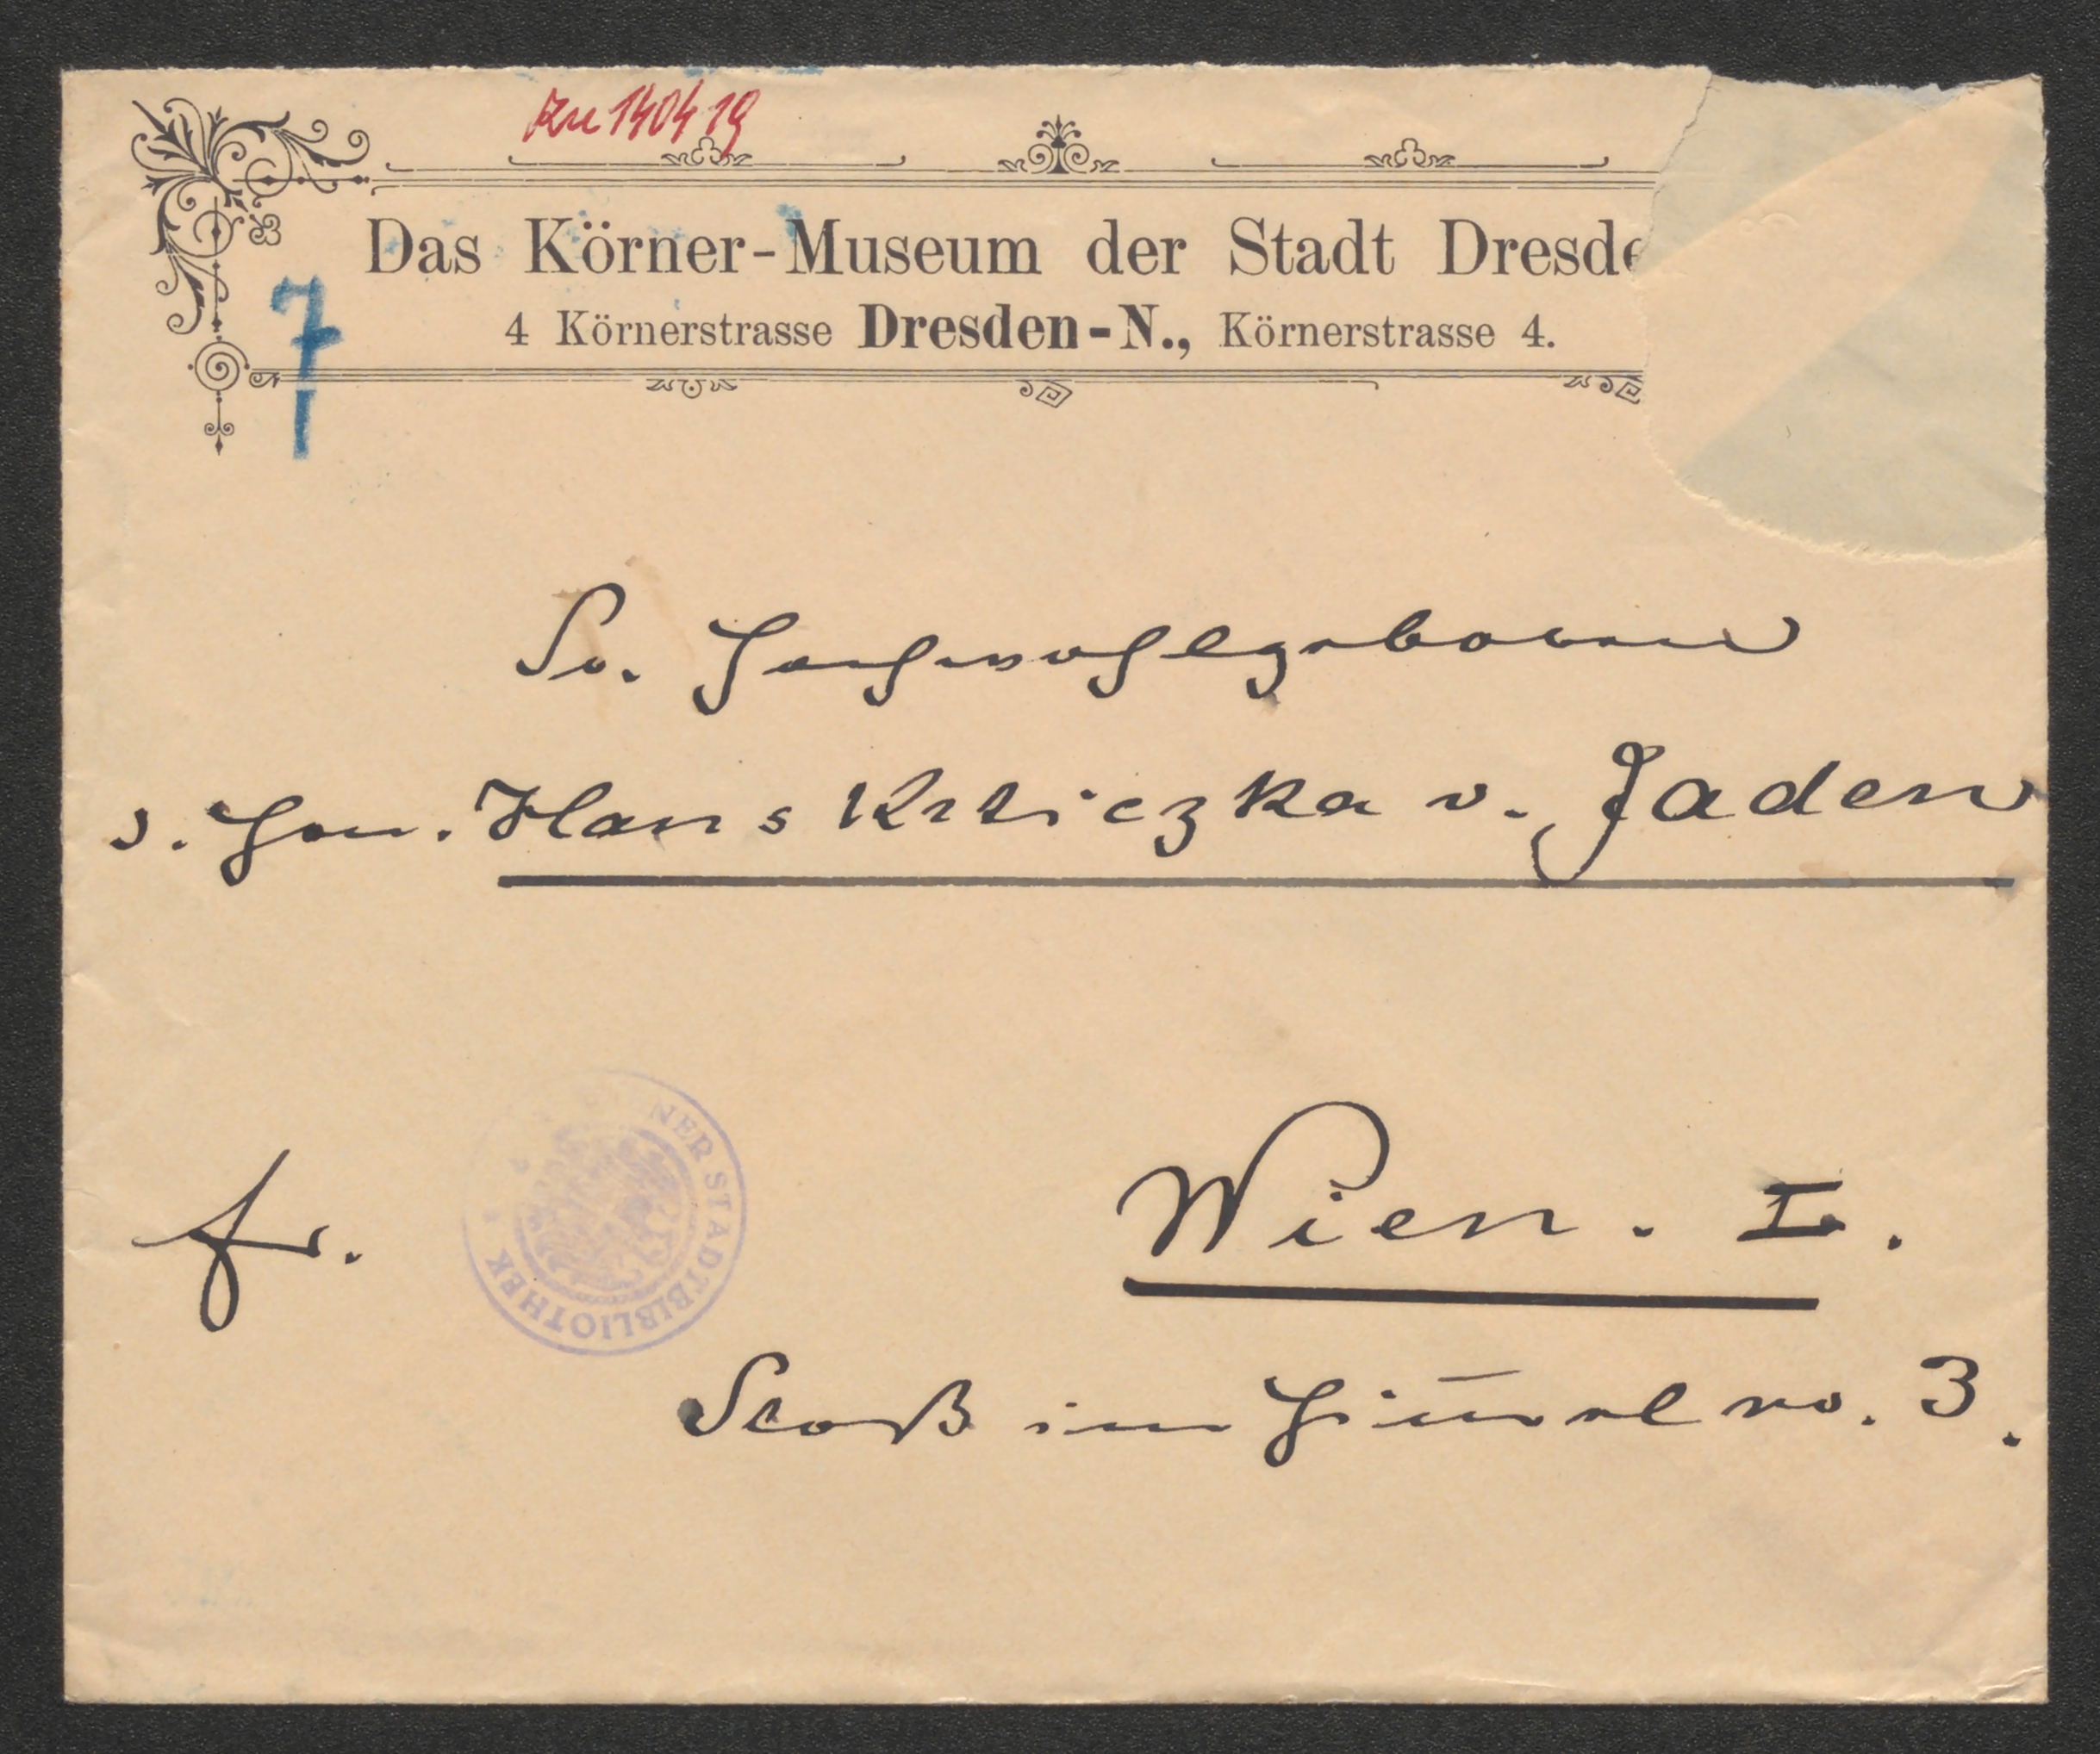 Zu 140419
Das Körner-Museum der Stadt Dresde
4 Körnerstrasse Dresden-N., Körnerstrasse 4.
7
Sr. Hochwohlgeboren
d. Hrn. Hans Krticzka v. Jaden
fr.
Wien. I.
NER STADTBIBLIOTHEK
Stoß im Him̅el no. 3.